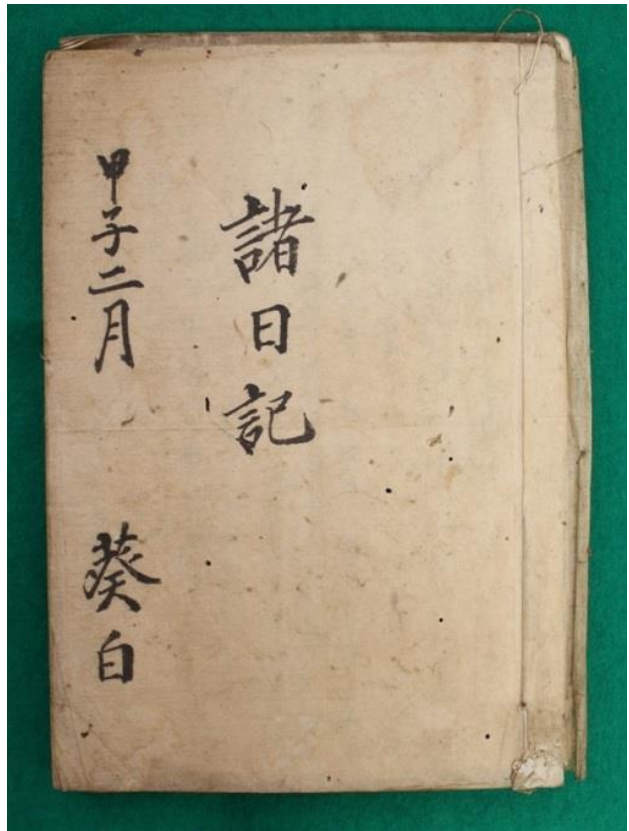 諸日記
甲子二月 葵白